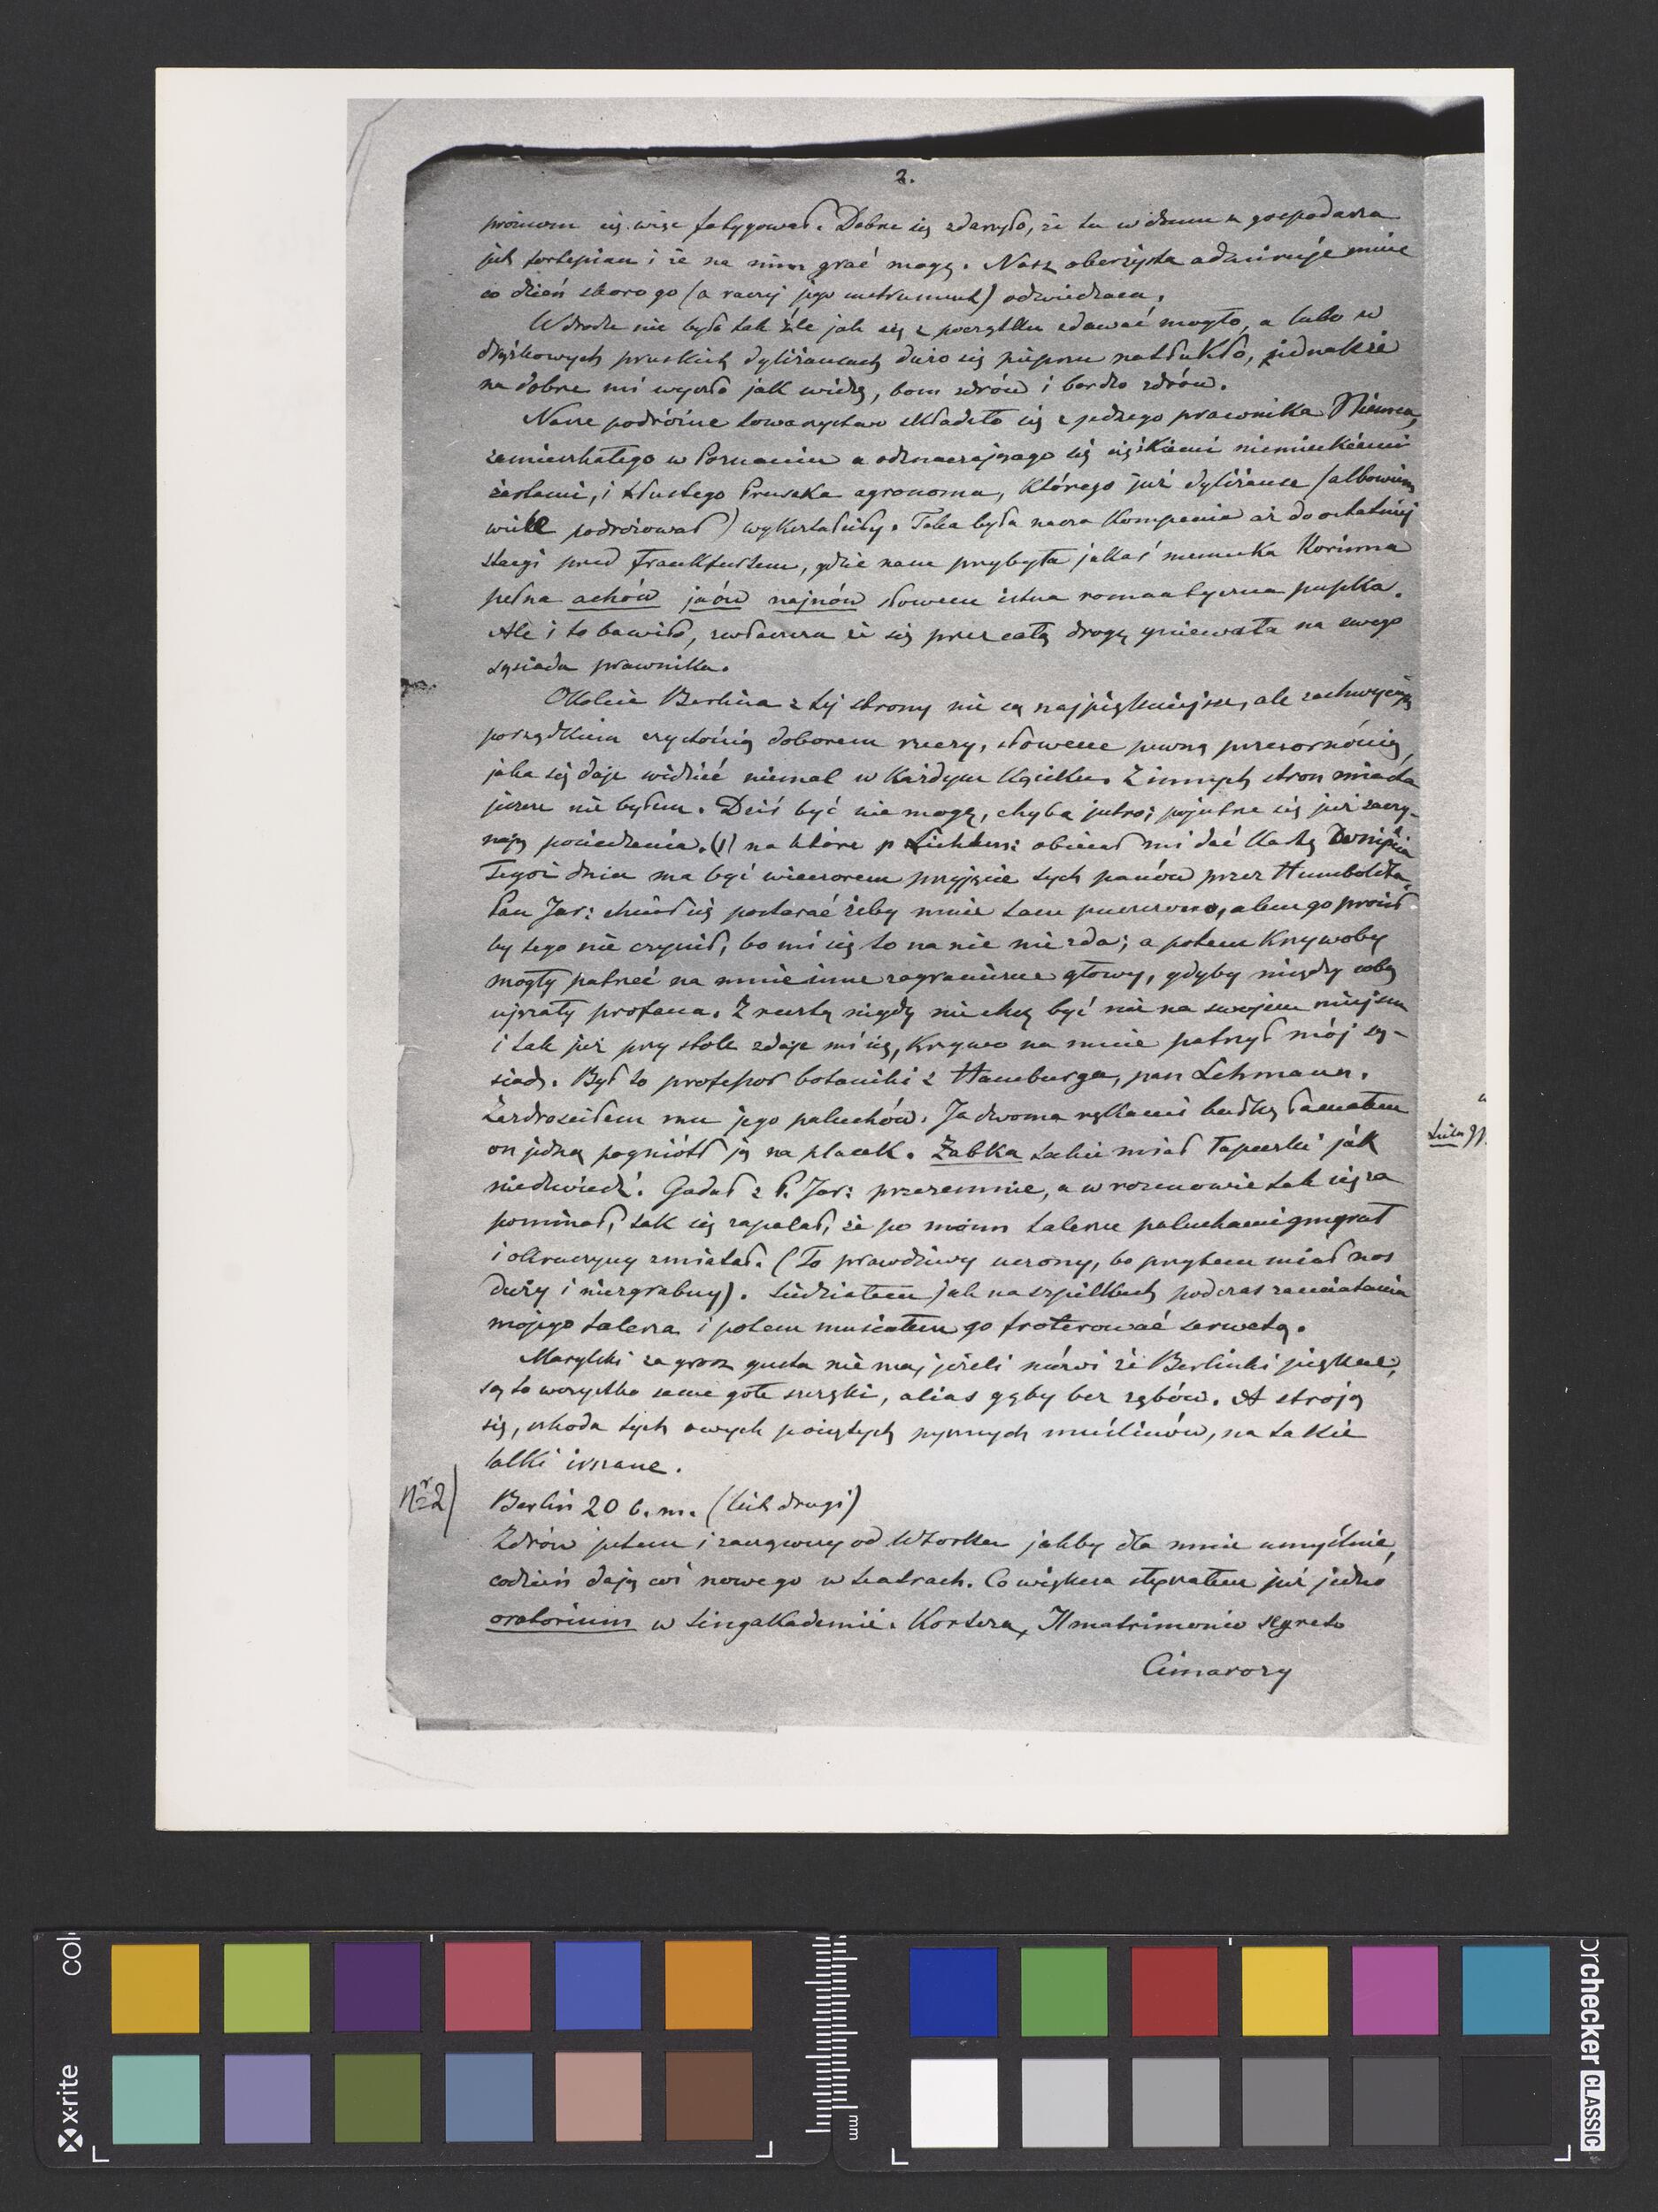 2.
prożnom się więc fatygował. Dobrze się zdarzyło, że tu w domu u gospodarza
jest fortepian i że na nim grać mogę. Nasz oberżysta admiruje mnie
co dzień skoro go (a raczej jego instrument) odwiedzam.
W drodze nie było tak źle jak się z początku zdawać mogło, a lubo w
drążkowych pruskich dyliżansach dużo się pieprzu natłukło, jednakże
na dobre mi wyszło jak widzę, bom zdrów i bardzo zdrów.
Nasze podróżne towarzystwo składało się z jednego prawnika Niemca,
zamieszkałego w Poznaniu a odznaczającego się ciężkiemi niemieckiemi
żartami, i tłustego Prusaka agronoma, którego już dyliżanse (albowiem
wiele podróżował) wykształciły. Taka była nasza Kompania aż do ostatniej
stacyi przed Frankfurtem, gdzie nam przybyła jakaś niemiecka Korinna
pełna achów jaów najnów słowem istna romantyczna pupka.
Ale i to bawiło, zwłaszcza że się przez całą drogę gniewała na swego
sąsiada prawnika.
Okolice Berlina z tej strony nie są najpiękniejsze, ale zachwycają
porządkiem czystością doborem rzeczy, słowem pewną przezornością,
jaka się daje widzieć niemal w każdym kąciku. Z innych stron miasta
jeszcze nie byłem. Dziś być nie mogę, chyba jutro; pojutrze się już zaczy-
nają posiedzenia. (1) na które p Lichten: obiecał mi dać Kartę
Tegoż dnia ma być wieczorem przyjęcie tych panów przez Humboldta.
Pan Jar: chciał się postarać żeby mnie tam puszczono, alem go prosił
by tego nie czynił, bo mi się to na nic nie zda; a potem krzywoby
mogły patrzeć na mnie inne zagraniczne głowy, gdyby między sobą
ujrzały profana. Zresztą nigdy nie chcę być nie na swojem miejscu
i tak już przy stole zdaje mi się, Krzywo na mnie patrzył mój są-
siad. Był to professor botaniki z Hamburga, pan Lehmann.
Zazdrościłem mu jego paluchów. Ja dwoma rękami bułkę łamałem
on jedną pogniótł ją na placek. Żabka takie miał łapeczki jak
niedźwiedź. Gadał z P. Jar: przezemnie, a w rozmowie tak się za
pominał, tak się zapalał, że po moim talerzu paluchami gmyrał
i okruszyny zmiatał. (To prawdziwy uczony, bo przytem miał nos
duży i niezgrabny). Siedziałem jak na szpilkach podczas zamiatania
mojego talerza i potem musiałem go froterować serwetą.
Marylski za grosz gustu nie ma, jeżeli mówi że Berlinki piękne,
są to wszystko same gołe szczęki, alias gęby bez zębów. A stroją
się, szkoda tych owych pociętych pysznych muślinów, na takie
lalki irszane.
Nr 2)
Berlin 20 b. m. (list drugi)
Zdrów jestem i zacząwszy od Wtorku jakby dla mnie umyślnie,
codzień dają coś nowego w teatrach. Co większa słyszałem już jedno
oratorium w Singakademie. Korteza, Il matrimonio segreto
Cimarozy